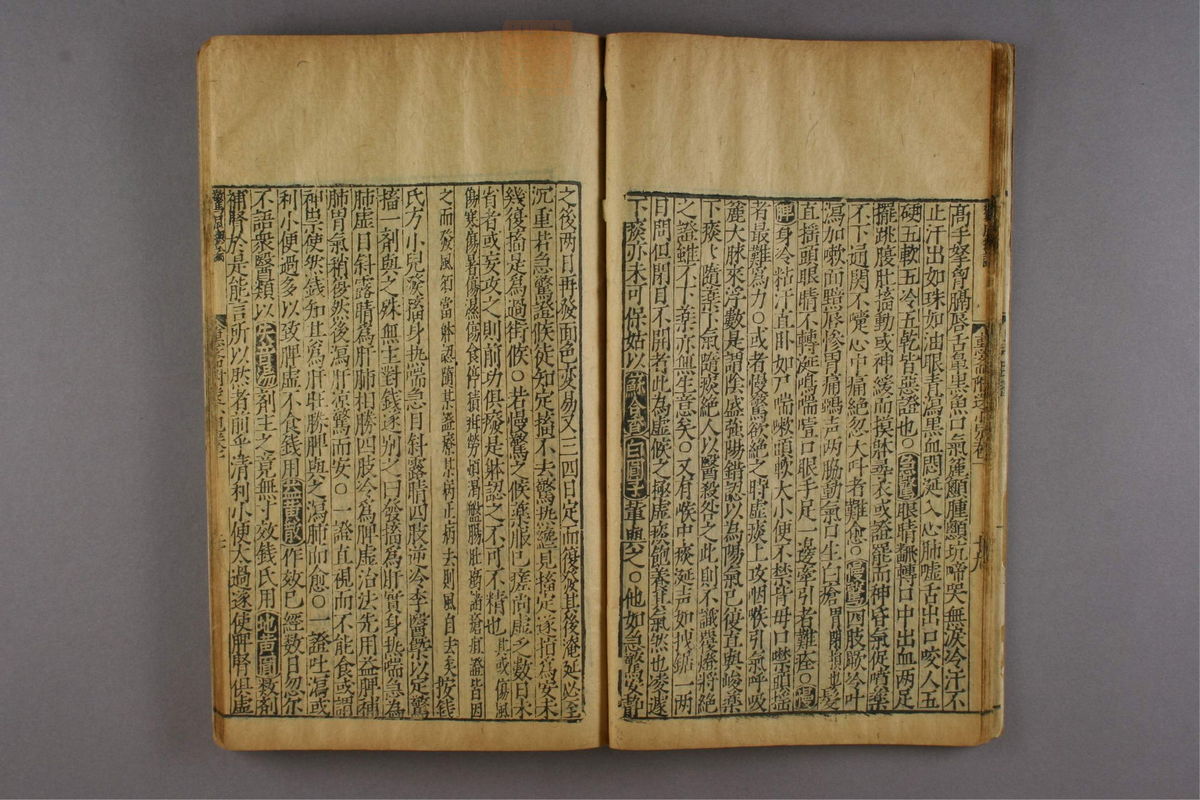 高手拏胷膈唇舌卑黒魚口氣麄顖腫顱坑啼哭無淚冷汗不
止汗出如珠如油眼青爲黒血悶涎入心肺嘘舌出口咬人五
硬五軟五冷五乾皆惡證也○急驚眼睛飜轉口中出血两足
擺跳腹肚搐動或神緩而摸躰尋衣或證罷而神昏氣促噴藥
不下通関不嚏心中痛絶忽大呌者難愈○慢驚四肢厥冷吐
瀉加嗽而黯唇慘胃痛鵶声两脇動氣口生白瘡胃閉蛔虫髮
直揺頭眼睛不轉涎鳴喘噎口眼手足一邊牽引者難痊○慢
脾身冷粘汗直卧如尸喘嗽頭軟大小便不禁背毋口噤頭揺
者最難爲力○或者慢驚欲絶之時虚痰上攻咽喉引氣呼吸
麄大脉來浮數是謂隂盛強陽錯認以爲陽氣已復直與峻藥
下痰痰隨藥下氣隨痰絶人以醫殺咎之此則不識覆燎將絶
之證雖不下藥亦無生意矣○又有喉中痰延声如拽鋸一两
日間但閉目不開者此爲虚候之極虚痰飽養胃氣然也凌遽
下痰亦未可保姑以蘇合丸白圓子輩與之○他如急驚安靜
之後两日再發面色变易又三四日定而復發其後淹延必至
沉重葢急驚證候徒知定搐不去驚热纔見搐定遂指爲安未
幾復搐是爲過街候○若慢驚之候藥服已瘥尚虚之数日未
省者或妄攻之則前功俱癈是躰認之不可不精也其或傷風
傷寒傷暑傷濕傷食停積疳勞煩渴盤腸肚痛諸瘡雜證皆因
之而發風者當躰認箇某證療某病正病去則風自去矣按錢
氏方小児發搐身热喘急目斜露睛四肢逆冷李醫㮣以定驚
搐一剤與之殊無主對錢逐别之曰發搐爲肝實身热喘急爲
肺虚目斜露睛爲肝肺相勝四肢冷爲脾虚治法先用益脾補
肺胃氣稍復然後瀉肝凉驚而安○一證直視而不能食或謂
神祟使然錢知其爲肝肚勝脾與之瀉肺而愈○一證吐瀉或
利小便過多以致脾虚不食錢用益黄散作效已經数日忽尔
不語衆醫類以失音湯剤主之竟無寸效錢氏用地黄圓数剤
補腎於是能言所以然者前乎清利小便太過遂使脾腎俱虚